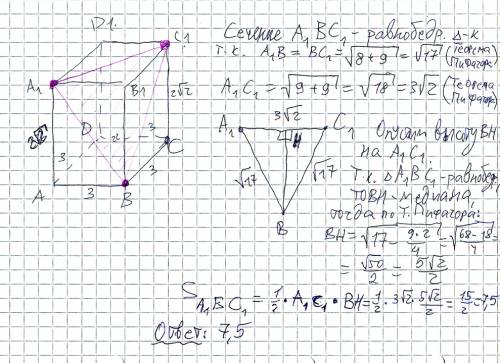 Сечение A₁BC₁ - равнобедр. Δ-к
т.к. A₁B = BC₁ = √8+9 = √17 (Теорема Пифагора)
A₁C₁ = √9+9 = √18 = 3√2 (Теорема Пифагора)
D1.
C1
A1
B1
2√2
D
3
C
3
3
A
3
B
3√2
A₁
H
C₁
√17
√17
B
Опустим высоту BH
на A₁C₁.
Т.к. ΔA₁BC₁ - равнобедр,
то BH - медиана,
тогда по Т. Пифагора:
BH = √17 - 9·2/4 = √68-18/4 =
= √50/2 = 5√2/2
S A₁BC₁ = 1/2 · A₁C₁ · BH = 1/2 · 3√2 · 5√2/2 = 15/2 = 7,5
Ответ: 7,5